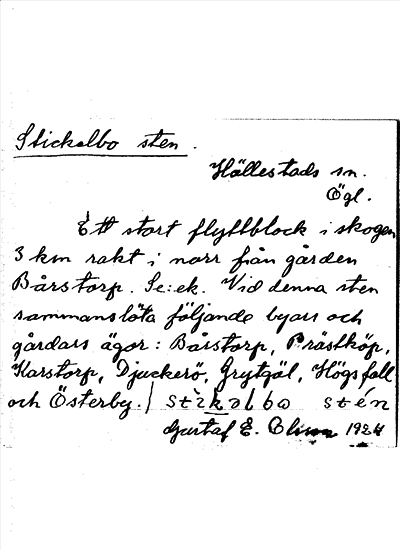 Stickelbo sten.
Hällestads sn.
Ögl.
Ett stort flyttblock i skogen
3 km rakt i norr från gården
Bårstorp. Se: ek. Vid denna sten
sammanslöta följande byars och
gårdars ägor: Bårstorp, Prästköp,
Karstorp, Djuckerö, Grytgöl, Högsfall
och Österby. / stìkəlbω stén
Gustaf E. 1924